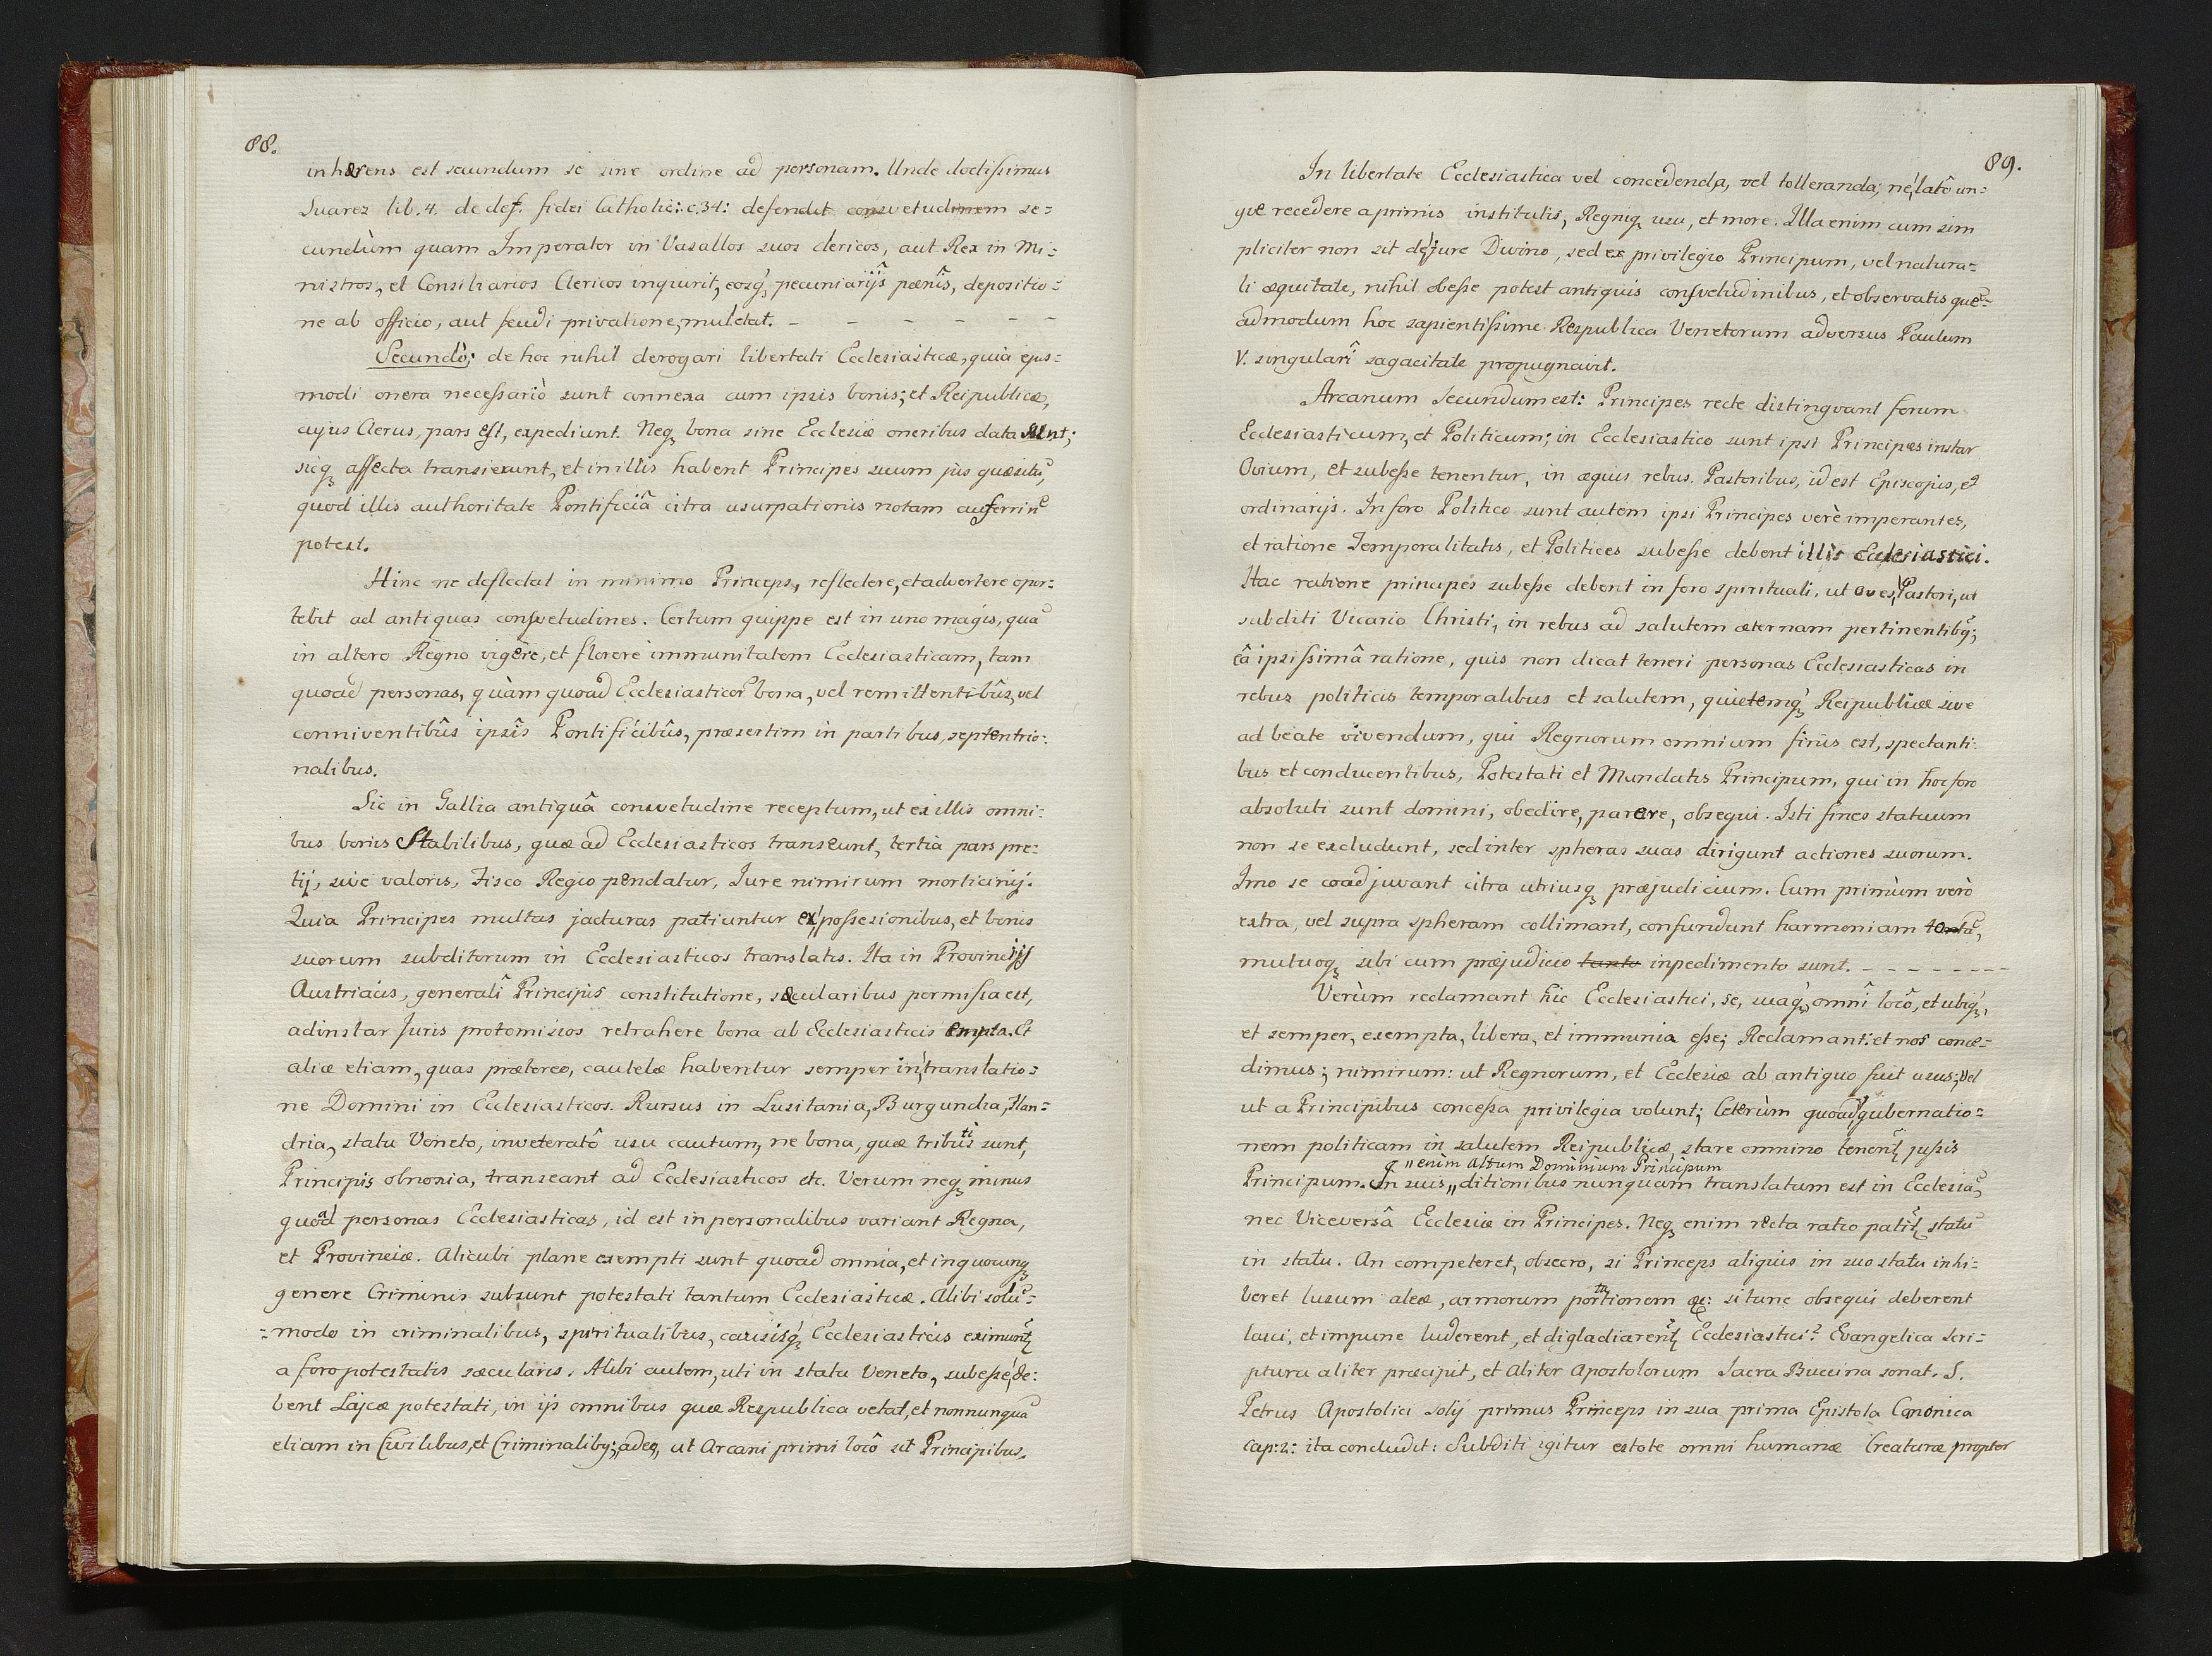 88.
inhærens est secundum se sine ordine ad personam. Unde doctissimus
Suarez lib. 4. de def. fidei Catholic: c. 34: defendit consvetudinem se=
cundùm quam Imperator in Vasallos suos clericos, aut Rex in Mi=
nistros, et Consiliarios Clericos inquirit, eosq₃ pecuniarijs pœnis, depositio=
ne ab officio, aut feudi privatione, mulctat. - - - - - -
Secundò: de hoc nihil derogari libertati Ecclesiasticæ, quia ejus=
modi onera necessariò sunt connexa cum ipsis bonis; et Reipublicæ,
cujus Clerus, pars est, expediunt. Neq₃ bona sine Ecclesiæ oneribus data sunt;
sicq₃ affecta transierunt, et in illis habent Principes suum jus quæsitũ,
quod illis authoritate Pontificiâ citra usurpationis notam auferri nõ
potest.
Hinc ne deflectat in minimo Princeps, reflectere, et advertere opor=
tebit ad antiquas consvetudines. Certum quippe est in uno magis, quã
in altero Regno vigere, et florere immunitatem Ecclesiasticam, tam
quoad personas, quàm quoad Ecclesiasticor̃ bona, vel remittentibûs, vel
conniventibûs ipsîs Pontificibûs, præsertim in partibus, septentrio=
nalibus.
Sic in Gallia antiquâ consvetudine receptum, ut ex illis omni=
bus bonis Stabilibus, quæ ad Ecclesiasticos transeunt, tertia pars pre=
tij, sive valoris, Fisco Regio pendatur, Jure nimirum morticinij.
Quia Principes multas jacturas patiuntur ex possesionibus, et bonis
suorum subditorum in Ecclesiasticos translatis. Ita in Provincijs
Austriacis, generali Principis constitutione, sæcularibus permissa est,
adinstar Juris protomisios retrahere bona ab Ecclesiasticis empta. Et
aliæ etiam, quas prætereo, cautelæ habentur semper in translatio=
ne Domini in Ecclesiasticos. Rursus in Lusitania, Burgundia, Flan=
dria, statu Veneto, inveteratô usu cautum, ne bona, quæ tributis sunt,
Principis obnoxia, transeant ad Ecclesiasticos etc. Verum neq₃ minus
quoad personas Ecclesiasticas, id est in personalibus variant Regna,
et Provinciæ. Alicubi plane exempti sunt quoad omnia, et in quocunq₃
genere Criminis subsunt potestati tantum Ecclesiasticæ. Alibi solũ=
=modo in criminalibus, spiritualibus, causisq₃ Ecclesiasticis eximunt᷑
a foro potestatis sæcularis. Alibi autem, uti in statu Veneto, subesse de=
bent Laicæ potestati, in ijs omnibus quæ Respublica vetat, et nonnunquã
etiam in Civilibus, et Criminalibq; adeo, ut Arcani primi locô sit Principibus.
89.
In libertate Ecclesiastica vel concedenda, vel tolleranda; ne latô un=
gve recedere a primis institutis, Regniq₃ usu, et more. Illa enim cum sim
pliciter non sit de jure Divino, sed ex privilegio Principum, vel natura=
li æquitate, nihil obesse potest antiquis consvetudinibus, et observatis quẽ=
admodum hoc sapientissime Respublica Venetorum adversus Paulum
V. singulari sagacitate propugnavit.
Arcanum Secundum est: Principes recte distingvant forum
Ecclesiasticum, et Politicum; in Ecclesiastico sunt ipsi Principes instar
Ovium, et subesse tenentur, in æquis rebus Pastoribus, id est Episcopis, et
ordinarijs. In foro Politico sunt autem ipsi Principes verè imperantes,
et ratione Temporalitatis, et Politices subesse debent illis Ecclesiastici.
Hac ratione principes subesse debent in foro spirituali, ut oves Pastori, ut
subditi Vicario Christi, in rebus ad salutem æternam pertinentibq;
eâ ipsissimâ ratione, quis non dicat teneri personas Ecclesiasticas in
rebus politicis temporalibus et salutem, quietemq₃ Reipublicæ sive
ad beate vivendum, qui Regnorum omnium finis est, spectanti=
bus et conducentibus, Potestati et Mandatis Principum, qui in hoc foro
absoluti sunt domini, obedire, parere, obsequi. Isti fines statuum
non se excludunt, sed inter spheras suas dirigunt actiones suorum.
Imo se coadjuvant citra utriusq₃ præjudicium. Cum primùm verò
extra, vel supra spheram collimant, confundunt harmoniam
mutuoq₃ sibi cum præjudicio tanto inpedimento sunt. - - - - - - - -
Verùm reclamant hic Ecclesiastici, se, suaq₃, omni locô, et ubiq₃,
et semper, exempta, libera, et immunia esse; Reclamant: et nos conce=
dimus; nimirum: ut Regnorum, et Ecclesiæ ab antiquo fuit usus; vel
ut a Principibus concessa privilegia volunt; Ceterùm quoad gubernatio=
nem politicam in salutem Reipublicæ, stare omnino tenent᷑ jussis
„enim Altum Dominium Principum
Principum. In suis „ditionibus nunquam translatum est in Ecclesiã,
nec Viceversâ Ecclesiæ in Principes. Neq₃ enim recta ratio patit᷑ statũ
in statu. An competeret, obsecro, si Princeps aliquis in suo statu inhi=
beret lusum aleæ, armorum portationem &c: si tunc obsequi deberent
laici, et impune luderent, et digladiarent᷑ Ecclesiastici? Evangelica Scri=
ptura aliter præcipit, et Aliter Apostolorum Sacra Buccina sonat. S.
Petrus Apostolici Solij primus Princeps in sua prima Epistola Canonica
Cap: 2: ita concludit: Subditi igitur estote omni humanæ Creaturæ propter